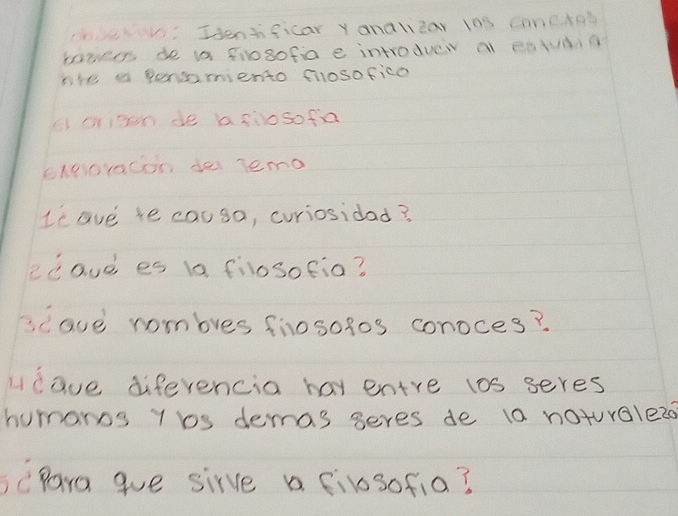 objetivo: Identificar y analizar los
básicos de la filosofia e introducir al estudia
nte a pensamiento filosofico
el origen de la filosofia
exploración del Tema
1¿ qué te causa, curiosidad?
2¿ qué es la filosofia?
3¿ qué nombres filosofos conoces?
4¿ que diferencia hay entre los seres
humanos y los demas seres de la naturaleza?
5¿ Para que sirve la filosofia?